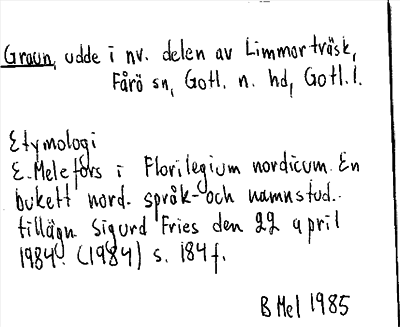 Graun, udde i nv. delen av Limmorträsk,
Fårö sn, Gotl. n. hd, Gotl. l.
Etymologi
E. Melefors i Florilegium nordicum. En
bukett nord. språk- och namnstud.
tillägn. Sigurd Fries den 22 april
1984. (1984) s. 184 f.
B Mel 1985